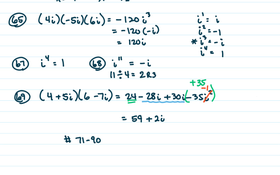 65 (4i)(-5i)(6i) = -120i³
= -120(-i)
= 120i
i¹ = i
i² = -1
* i³ = -i
i⁴ = 1
67 i⁴ = 1
68 i¹¹ = -i
11 ÷ 4 = 2R3
+35
69 (4 + 5i)(6 - 7i) = 24 - 28i + 30i - 35i² -1
= 59 + 2i
# 71-90